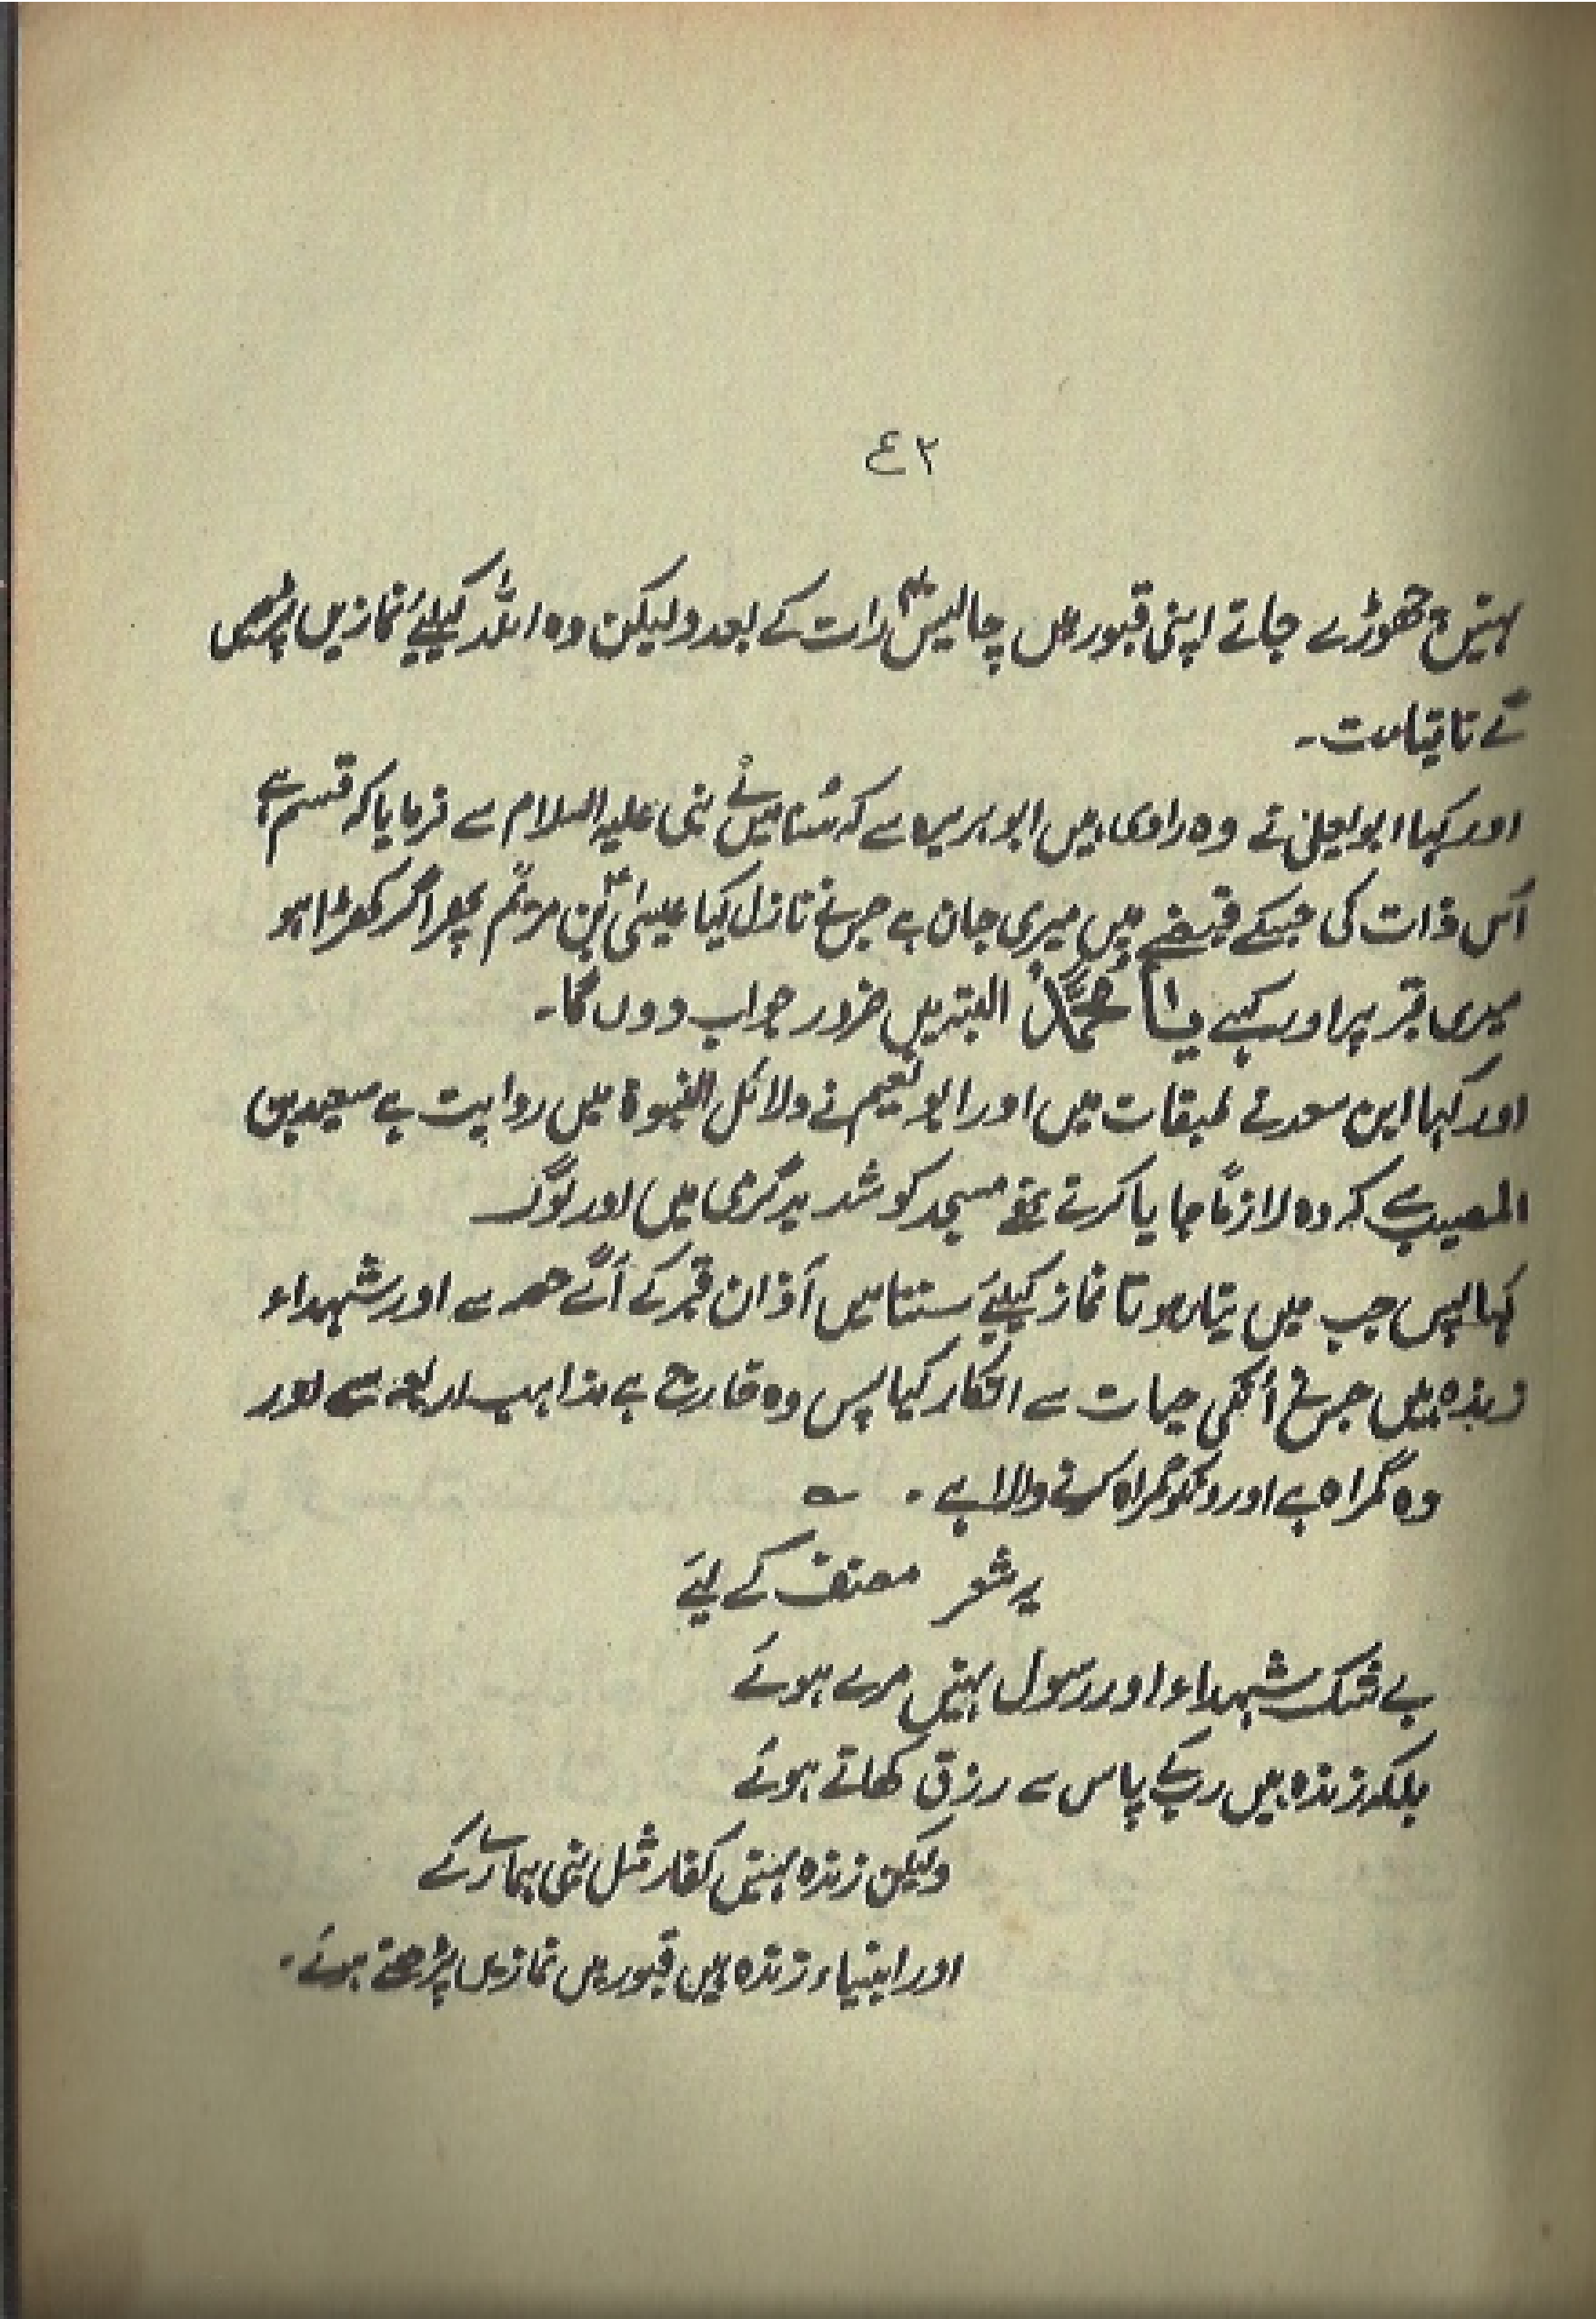 ٤٢
نہیں چھوڑے جاتے اپنی قبور میں چالیس رات کے بعد ولیکن وہ اللہ کیلئے نمازیں پڑھیں
گے تا قیامت۔
اور کہا ابو یعلیٰ نے وہ راوی ہیں ابو ہریرہ سے کہ سُنا میں نے نبی علیہ السلام سے فرمایا کہ قسم ہے
اُس ذات کی جسکے قبضے میں میری جان ہے جس نے نازل کیا عیسیٰ بن مریم پھر اگر کھڑا ہو
میری قبر پر اور کہے یا مُحَمَّدُ البتہ میں ضرور جواب دوں گا۔
اور کہا ابن سعد نے طبقات میں اور ابو نعیم نے دلائل النبوۃ میں روایت ہے سعید بن
المسیب سے کہ وہ لازماً جایا کرتے تھے مسجد کو شدید گرمی میں اور لوگ
کہا پس جب میں ہوتا نماز کیلئے سنتا میں اَذان قبر کے آگے سے اور شہداء
زندہ ہیں جس نے اُنکی حیات سے انکار کیا پس وہ خارج ہے مذاہب اربعہ سے اور
وہ گمراہ ہے اور گمراہ کرنے والا ہے ۔
یہ شعر مصنف کے لیے
بے شک شہداء اور رسول نہیں مرے ہوئے
بلکہ زندہ ہیں ربکے پاس سے رزق کھاتے ہوئے
ولیکن زندہ نہیں کفار مثل نبی ہمارے کے
اور انبیاء زندہ ہیں قبور میں نمازیں پڑھتے ہوئے۔